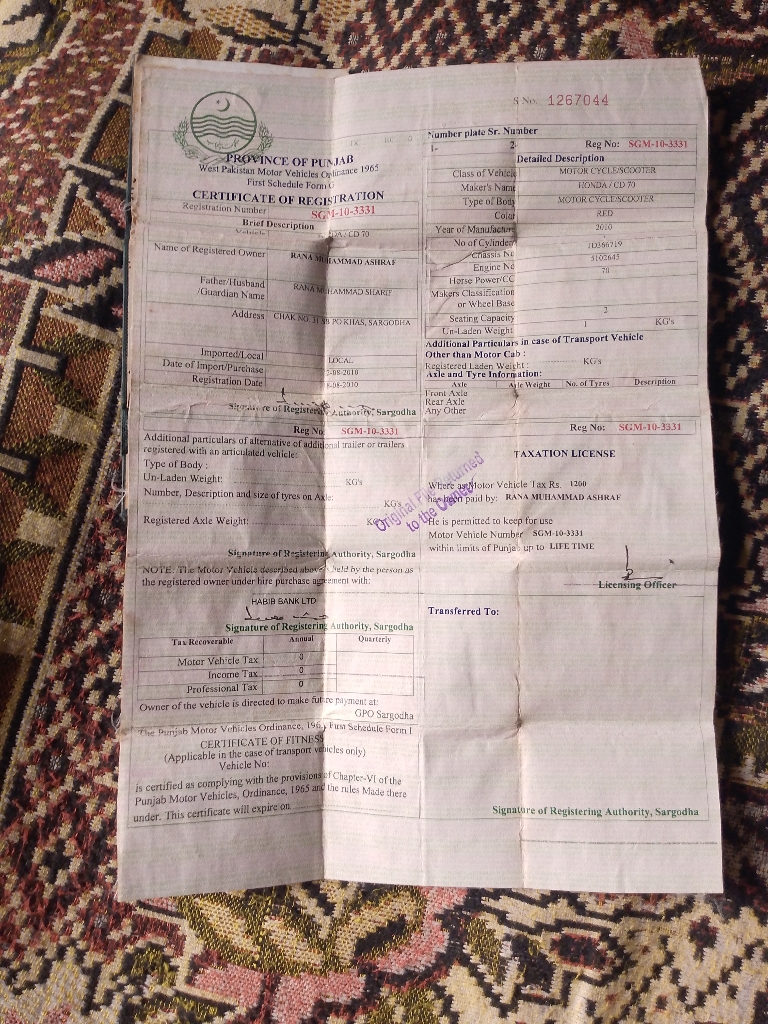 S No. 1267044
PROVINCE OF PUNJAB
West Pakistan Motor Vehicles Ordinance 1965
First Schedule Form G
CERTIFICATE OF REGISTRATION
Registration Number SGM-10-3331
Brief Description
Vehicle DA / CD 70
Name of Registered Owner RANA MUHAMMAD ASHRAF
Father/Husband
/Guardian Name RANA MUHAMMAD SHARIF
Address CHAK NO. PO KHAS, SARGODHA
Imported/Local LOCAL
Date of Import/Purchase -08-2010
Registration Date -08-2010
Signature of Registering Authority, Sargodha
Reg No: SGM-10-3331
Additional particulars of alternative of additional trailer or trailers
registered with an articulated vehicle:
Type of Body :
Un-Laden Weight: KG's
Number, Description and size of tyres on Axle:
KG's
Registered Axle Weight: KG's
Signature of Registering Authority, Sargodha
NOTE: The Motor Vehicle described above is held by the person as
the registered owner under hire purchase agreement with:
HABIB BANK LTD
Signature of Registering Authority, Sargodha
Tax Recoverable Annual Quarterly
Motor Vehicle Tax 0
Income Tax 0
Professional Tax 0
Owner of the vehicle is directed to make future payment at:
GPO Sargodha
The Punjab Motor Vehicles Ordinance, 1965 First Schedule Form I
CERTIFICATE OF FITNESS
(Applicable in the case of transport vehicles only)
Vehicle No:
is certified as complying with the provisions of Chapter-VI of the
Punjab Motor Vehicles, Ordinance, 1965 and the rules Made there
under. This certificate will expire on
Number plate Sr. Number
1- 2-
Reg No: SGM-10-3331
Detailed Description
Class of Vehicle MOTOR CYCLE/SCOOTER
Maker's Name HONDA / CD 70
Type of Body MOTOR CYCLE/SCOOTER
Color RED
Year of Manufacture 2010
No of Cylinder
Chassis No ID366719
Engine No 5102645
Horse Power/CC 70
Makers Classification
or Wheel Base
Seating Capacity 2
Un-Laden Weight 1 KG's
Additional Particulars in case of Transport Vehicle
Other than Motor Cab :
Registered Laden Weight : KG's
Axle and Tyre Information:
Axle Axle Weight No. of Tyres Description
Front Axle
Rear Axle
Any Other
Reg No: SGM-10-3331
TAXATION LICENSE
Where as Motor Vehicle Tax Rs. 1200
has been paid by: RANA MUHAMMAD ASHRAF
He is permitted to keep for use
Motor Vehicle Number SGM-10-3331
within limits of Punjab up to LIFE TIME
Licensing Officer
Original File Returned
to the Owner
Transferred To:
Signature of Registering Authority, Sargodha